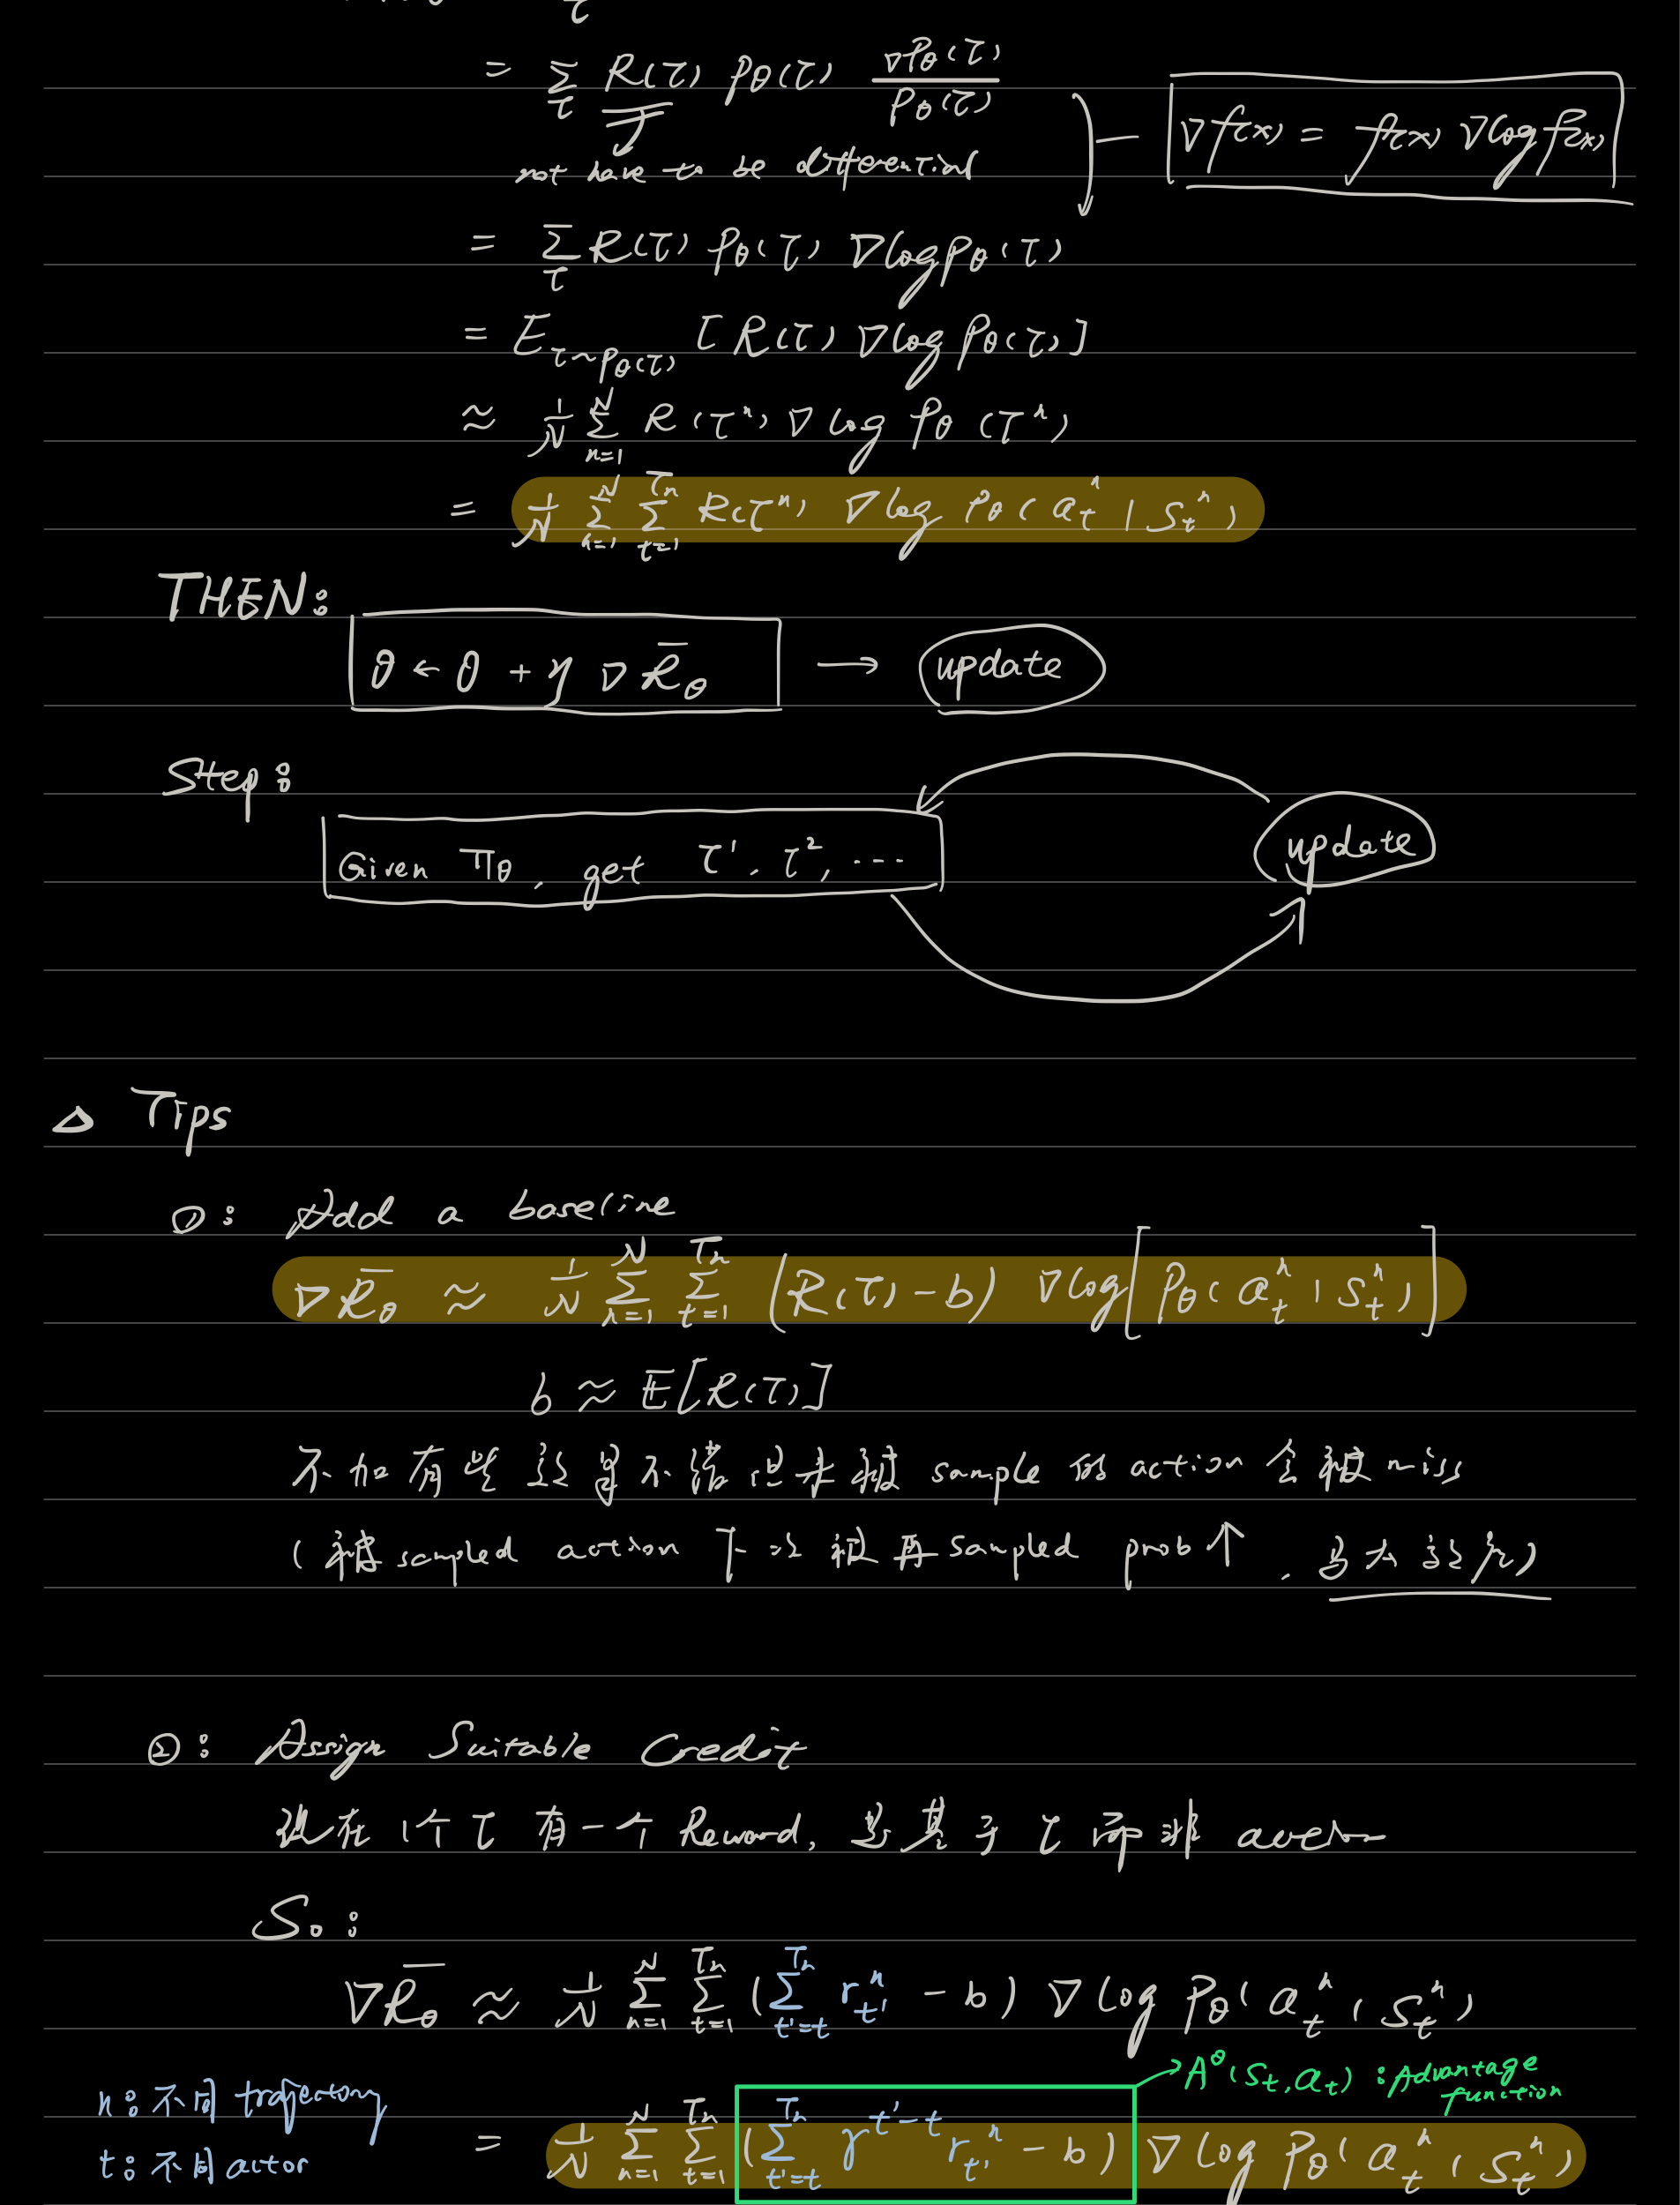 = Σ_τ R(τ) pθ(τ) ∇Pθ(τ) / Pθ(τ)
∇f(x) = f(x) ∇log f(x)
not have to be differential
= Σ_τ R(τ) pθ(τ) ∇log pθ(τ)
= E_{τ~pθ(τ)} [R(τ) ∇log pθ(τ)]
≈ 1/N Σ_{n=1}^{N} R(τⁿ) ∇log pθ(τⁿ)
= 1/N Σ_{n=1}^{N} Σ_{t=1}^{Tn} R(τⁿ) ∇log pθ(a_t^n | s_t^n)
THEN:
θ ← θ + η ∇R̄_θ → update
Step:
Given πθ, get τ¹, τ², ...
update
Δ Tips
①: Add a baseline
∇R̄_θ ≈ 1/N Σ_{n=1}^{N} Σ_{t=1}^{Tn} (R(τ) - b) ∇log[Pθ(a_t^n | s_t^n)]
b ≈ E[R(τ)]
不加有些效果不错但未被 sample 的 action 会被 miss
(被 sampled action 下次被再 sampled prob ↑,
②: Assign Suitable Credit
现在 1个 τ 有一个 Reward, 基于 τ 而非
So:
∇R̄_θ ≈ 1/N Σ_{n=1}^{N} Σ_{t=1}^{Tn} (Σ_{t'=t}^{Tn} r_{t'}^n - b) ∇log Pθ(a_t^n | s_t^n)
A^θ(s_t, a_t) : Advantage function
n: 不同 trajectory
t: 不同 actor
= 1/N Σ_{n=1}^{N} Σ_{t=1}^{Tn} (Σ_{t'=t}^{Tn} γ^{t'-t} r_{t'}^n - b) ∇log Pθ(a_t^n | s_t^n)